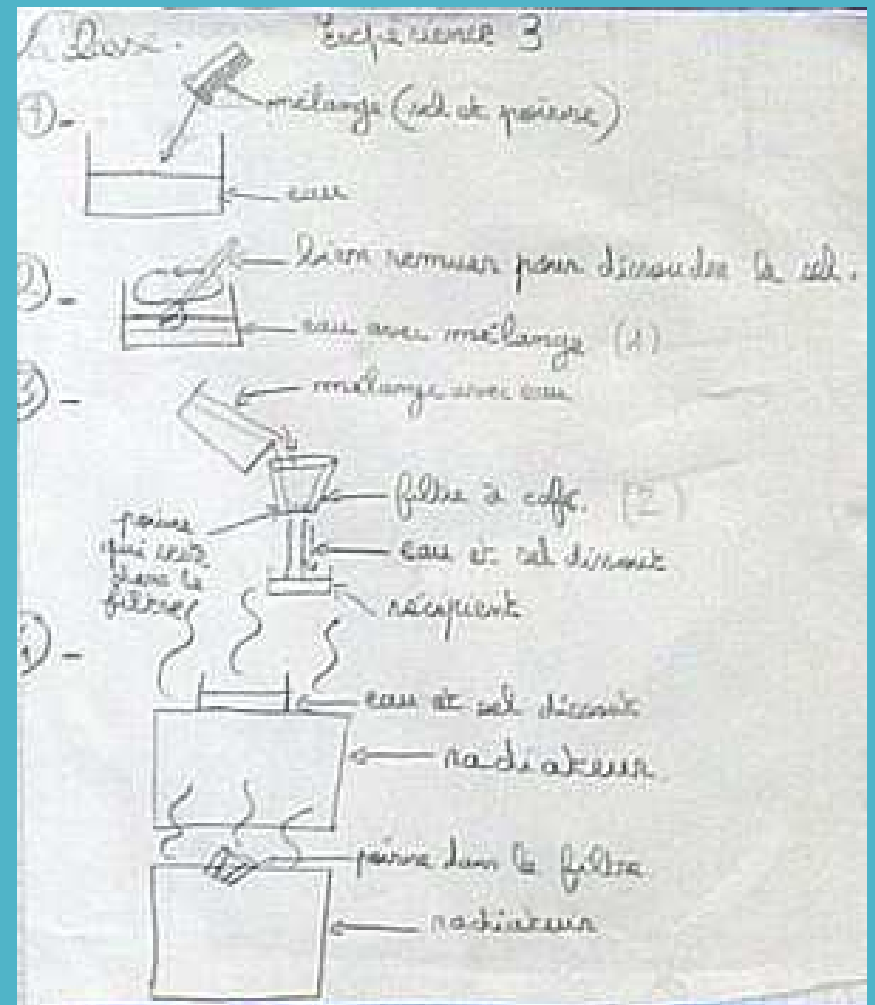 Expérience 3
1)-
mélange (sel et poivre)
eau
2)-
bien remuer pour dissoudre le sel.
eau avec mélange (1)
3)-
mélange avec eau
filtre à café. (2)
poivre
qui est
dans le
filtre
eau et sel dissout
récipient
4)-
eau et sel dissout
radiateur
poivre dans le filtre
radiateur